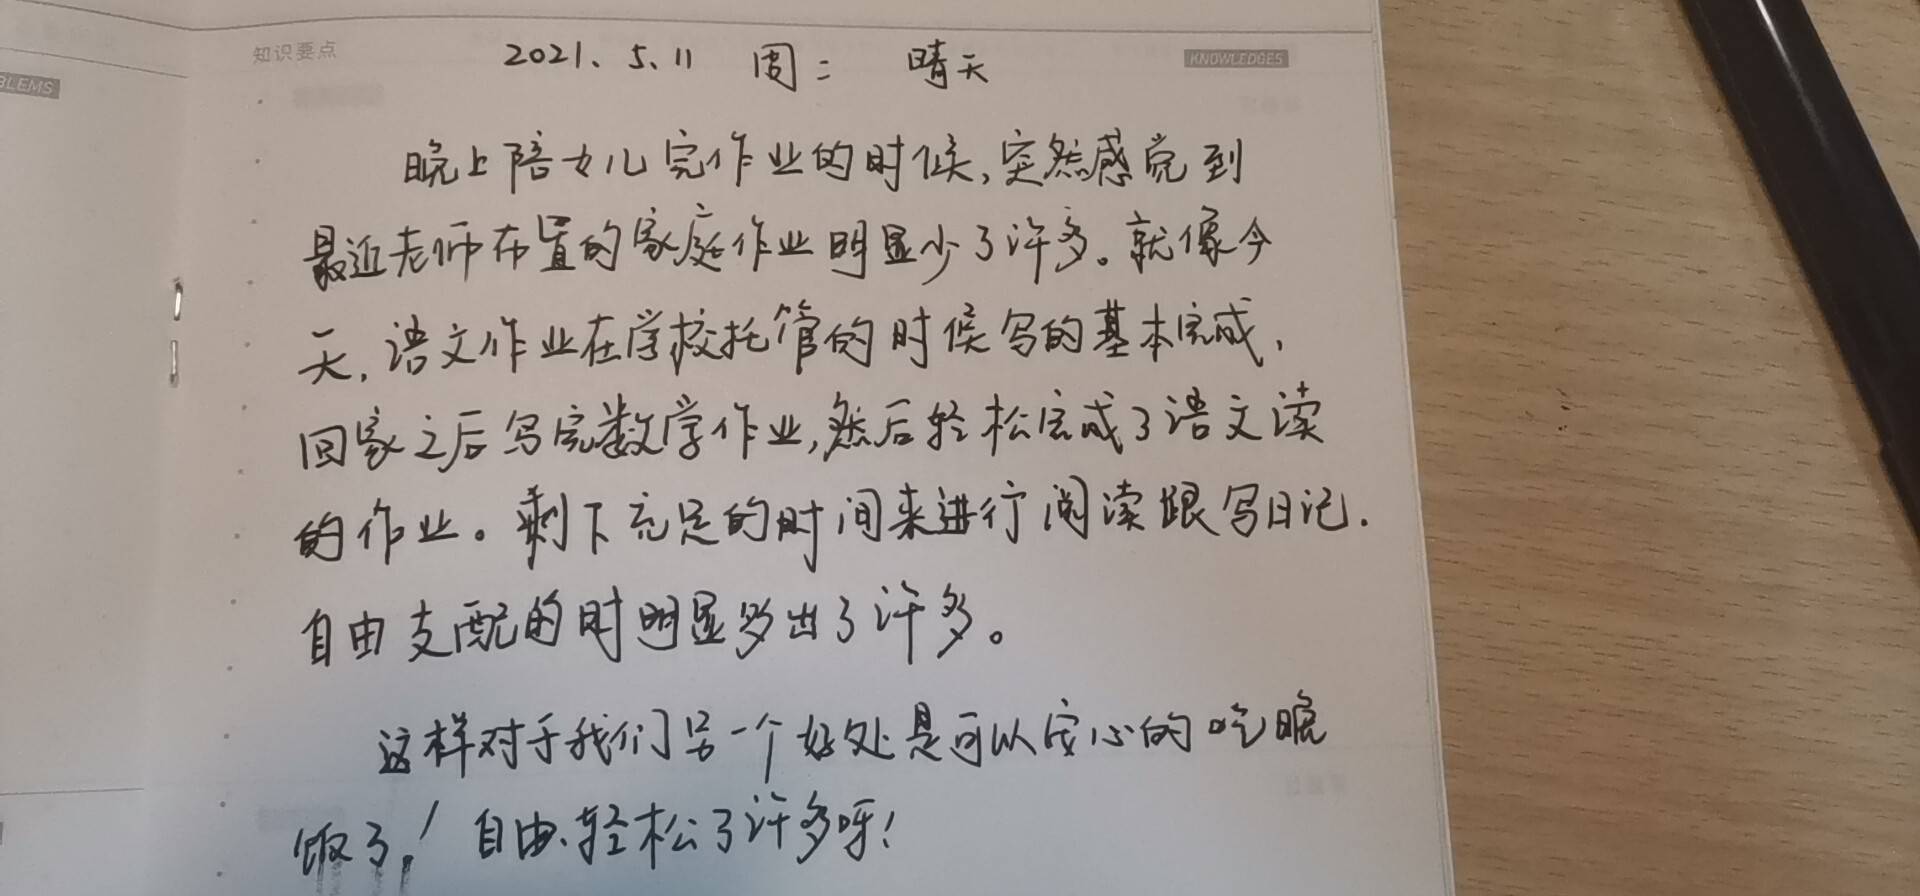 BLEMS
知识要点
KNOWLEDGES
2021、5、11 周二 晴天
晚上陪女儿完作业的时候,突然感觉到
最近老师布置的家庭作业明显少了许多。就像今
天,语文作业在学校托管的时候写的基本完成,
回家之后写完数学作业,然后轻松完成了语文读
的作业。剩下充足的时间来进行阅读跟写日记.
自由支配的时明显多出了许多。
这样对于我们另一个好处是可以安心的吃晚
饭了!自由、轻松了许多呀!